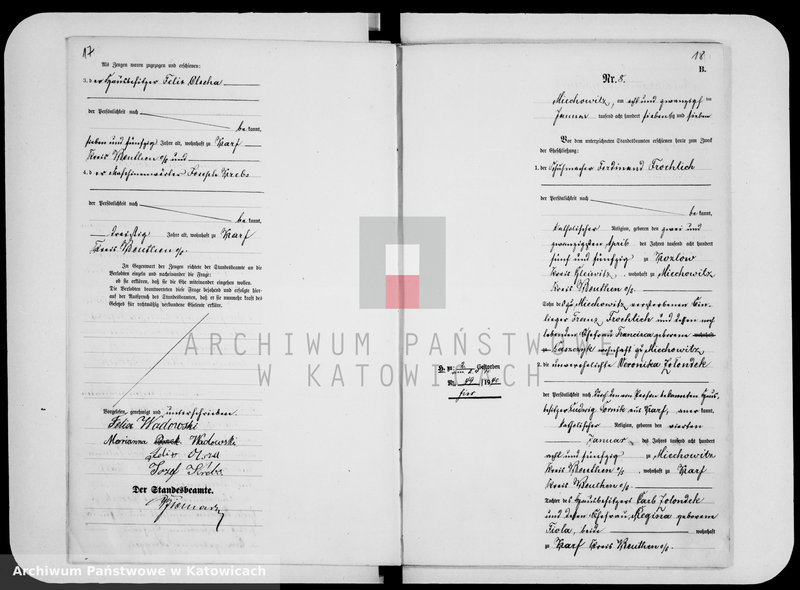 17
Als Zeugen waren zugezogen und erschienen:
3. der Hausbesitzer Felix Olscha
der Persönlichkeit nach
be kannt,
sieben und fünfzig Jahre alt, wohnhaft zu Karf
Kreis Beuthen o/s und
4. der Maschinenwärter Joseph
der Persönlichkeit nach
be kannt,
dreißig Jahre alt, wohnhaft zu Karf
Kreis Beuthen o/s.
In Gegenwart der Zeugen richtete der Standesbeamte an die
Verlobten einzeln und nacheinander die Frage:
ob sie erklären, daß sie die Ehe miteinander eingehen wollen.
Die Verlobten beantworteten diese Frage bejahend und erfolgte hier-
auf der Ausspruch des Standesbeamten, daß er sie nunmehr kraft des
Gesetzes für rechtmäßig verbundene Eheleute erkläre.
Vorgelesen, genehmigt und unterschrieben.
Felix Wadowski
Marianna Wadowski
Jozef
Der Standesbeamte.
18
B.
Nr. 8.
Miechowitz, am acht und zwanzigsten
Januar tausend acht hundert siebenzig und sieben
Vor dem unterzeichneten Standesbeamten erschienen heute zum Zweck
der Eheschließung:
1. der Schuhmacher Ferdinand Froehlich
der Persönlichkeit nach
be kannt,
katholischer Religion, geboren den zwei und
zwanzigsten April des Jahres tausend acht hundert
fünf und fünfzig zu Kozlow
Kreis Gleiwitz, wohnhaft zu Miechowitz
Kreis Beuthen o/s.
Sohn des zu Miechowitz verstorbenen Ein-
lieger Franz Froehlich und dessen noch
lebenden Ehefrau Francisca geborene
wohnhaft zu Miechowitz
2. die unverehelichte Veronika Zolondek
der Persönlichkeit nach durch den von Person bekannten Haus-
besitzer Ludwig Hornik aus Karf, aner kannt,
katholischer Religion, geboren den vierten
Januar des Jahres tausend acht hundert
acht und fünfzig zu Miechowitz
Kreis Beuthen o/s, wohnhaft zu Karf
Kreis Beuthen o/s.
Tochter des Hausbesitzers Carl Zolondek
und dessen Ehefrau Regina geborene
Fiola, beide wohnhaft
zu Karf Kreis Beuthen o/s.
Gestorben
Nr. 69 /19
hier
ARCHIWUM PAŃSTWOWE
W KATOWICACH
Archiwum Państwowe w Katowicach